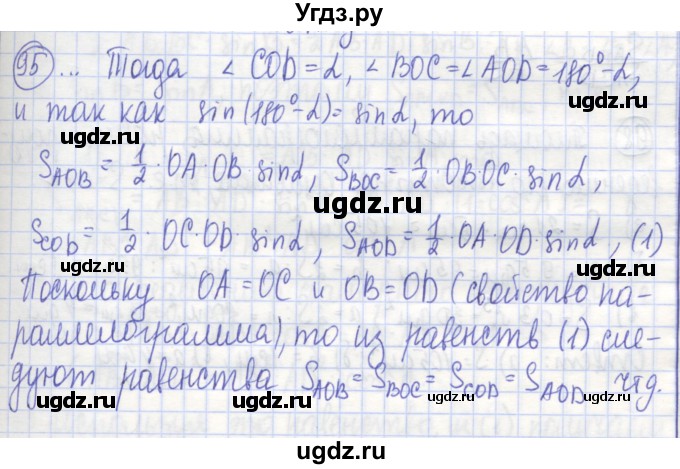 Угдз.ру
95 ... Тогда ∠ COD = α, ∠ BOC = ∠ AOD = 180° - α,
и так как sin(180° - α) = sin α, то
ugdz.ru ugdz.ru ugdz.ru
S_AOB = 1/2 · OA · OB · sin α, S_BOC = 1/2 · OB · OC · sin α,
ugdz.ru
S_COD = 1/2 · OC · OD · sin α, S_AOD = 1/2 · OA · OD · sin α, (1)
ugdz.ru ugdz.ru ugdz.ru
Поскольку OA = OC и OB = OD (свойство па-
ugdz.ru
раллелограмма), то из равенств (1) сле-
дуют равенства S_AOB = S_BOC = S_COD = S_AOD чтд.
ugdz.ru ugdz.ru ugdz.ru
ugdz.ru